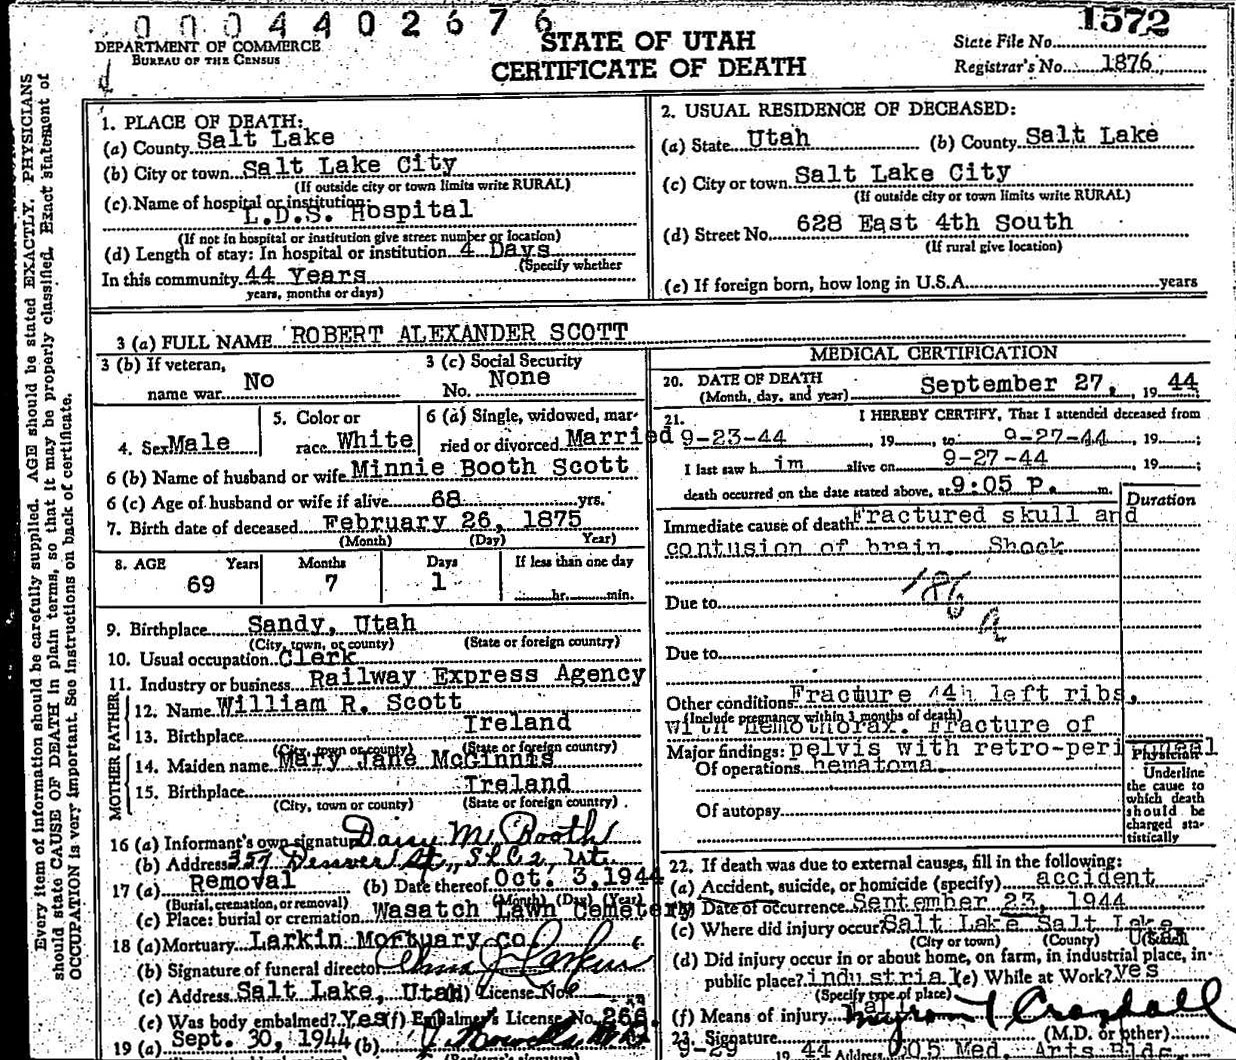 0004402676
1572
DEPARTMENT OF COMMERCE
BUREAU OF THE CENSUS
STATE OF UTAH
CERTIFICATE OF DEATH
State File No.
Registrar's No. 1876
Every item of information should be carefully supplied. AGE should be stated EXACTLY. PHYSICIANS
should state CAUSE OF DEATH in plain terms, so that it may be properly classified. Exact statement of
OCCUPATION is very important. See instructions on back of certificate.
1. PLACE OF DEATH:
(a) County Salt Lake
(b) City or town Salt Lake City
(If outside city or town limits write RURAL)
(c) Name of hospital or institution:
L.D.S. Hospital
(If not in hospital or institution give street number or location)
(d) Length of stay: In hospital or institution 4 Days
(Specify whether
In this community 44 Years
years, months or days)
2. USUAL RESIDENCE OF DECEASED:
(a) State Utah (b) County Salt Lake
(c) City or town Salt Lake City
(If outside city or town limits write RURAL)
(d) Street No. 628 East 4th South
(If rural give location)
(e) If foreign born, how long in U.S.A. years
3 (a) FULL NAME ROBERT ALEXANDER SCOTT
3 (b) If veteran,
name war No
3 (c) Social Security
No. None
4. Sex Male
5. Color or
race White
6 (a) Single, widowed, mar-
ried or divorced Married
6 (b) Name of husband or wife Minnie Booth Scott
6 (c) Age of husband or wife if alive 68 yrs.
7. Birth date of deceased February 26, 1875
(Month) (Day) Year)
8. AGE Years Months Days If less than one day
69 7 1 hr. min.
9. Birthplace Sandy, Utah
(City, town, or county) (State or foreign country)
10. Usual occupation Clerk
11. Industry or business Railway Express Agency
FATHER
12. Name William R. Scott
13. Birthplace Ireland
(City, town or county) (State or foreign country)
MOTHER
14. Maiden name Mary Jane McGinnis
15. Birthplace Ireland
(City, town or county) (State or foreign country)
16 (a) Informant's own signature Daisy M. Booth
(b) Address 357 Denver St., S.L.C. 2, Ut.
17 (a) Removal (b) Date thereof Oct. 3, 1944
(Burial, cremation, or removal) (Month) (Day) (Year)
(c) Place: burial or cremation Wasatch Lawn Cemetery
18 (a) Mortuary Larkin Mortuary co
(b) Signature of funeral director
(c) Address Salt Lake, Utah (d) License No.
(e) Was body embalmed? Yes (f) Embalmer's License No. 266
19 (a) Sept. 30, 1944 (b)
(Registrar's signature)
MEDICAL CERTIFICATION
20. DATE OF DEATH
(Month, day, and year) September 27, 19 44
21. I HEREBY CERTIFY, That I attended deceased from
9-23-44, 19 , to 9-27-44, 19 ;
I last saw h im alive on 9-27-44, 19 ;
death occurred on the date stated above, at 9:05 P. m.
Duration
Immediate cause of death Fractured skull and
contusion of brain. Shock
Due to
Due to
Other conditions Fracture 4h left ribs.
(Include pregnancy within 3 months of death)
with hemothorax. Fracture of
Major findings: pelvis with retro-peri
Of operations hematoma.
Of autopsy
Physician
Underline
the cause to
which death
should be
charged sta-
tistically
22. If death was due to external causes, fill in the following:
(a) Accident, suicide, or homicide (specify) accident
(b) Date of occurrence September 23, 1944
(c) Where did injury occur? Salt Lake Salt Lake Utah
(City or town) (County) (State)
(d) Did injury occur in or about home, on farm, in industrial place, in
public place? industrial (e) While at Work? yes
(Specify type of place)
(f) Means of injury
23. Signature (M.D. or other)
9-29 19 44 Address 505 Med. Arts Bldg